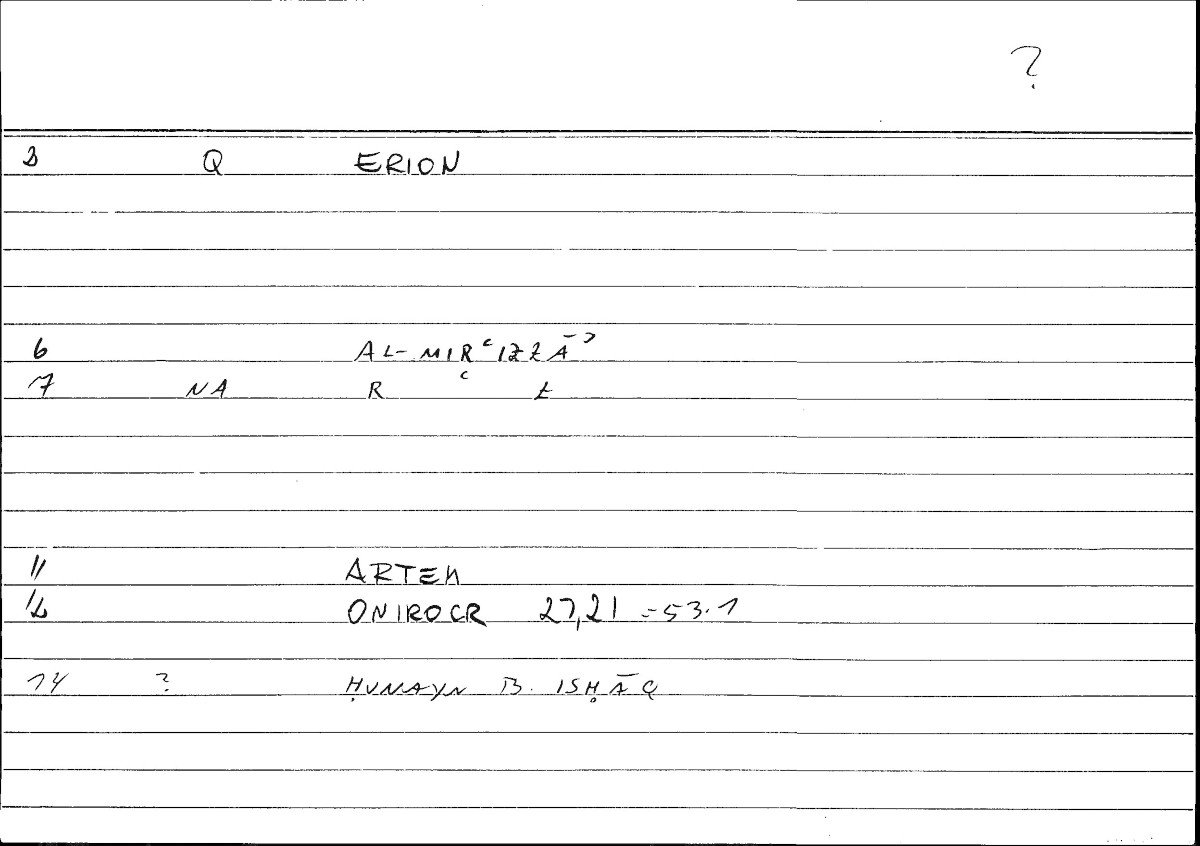 ?
3 Q ERION
6 AL-MIRʿIZZĀʾ
7 NA R ʿ Z
11 ARTEM
12 ONIROCR 27,21 = 53.1
14 ? ḤUNAYN B. ISḤĀQ